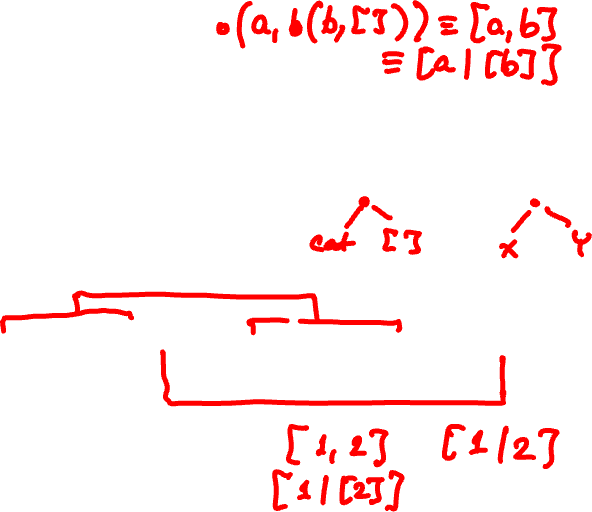 •(a, b(b, [])) ≡ [a, b]
≡ [a | [b]]
cat [] X Y
[1, 2] [1 | 2]
[1 | [2]]